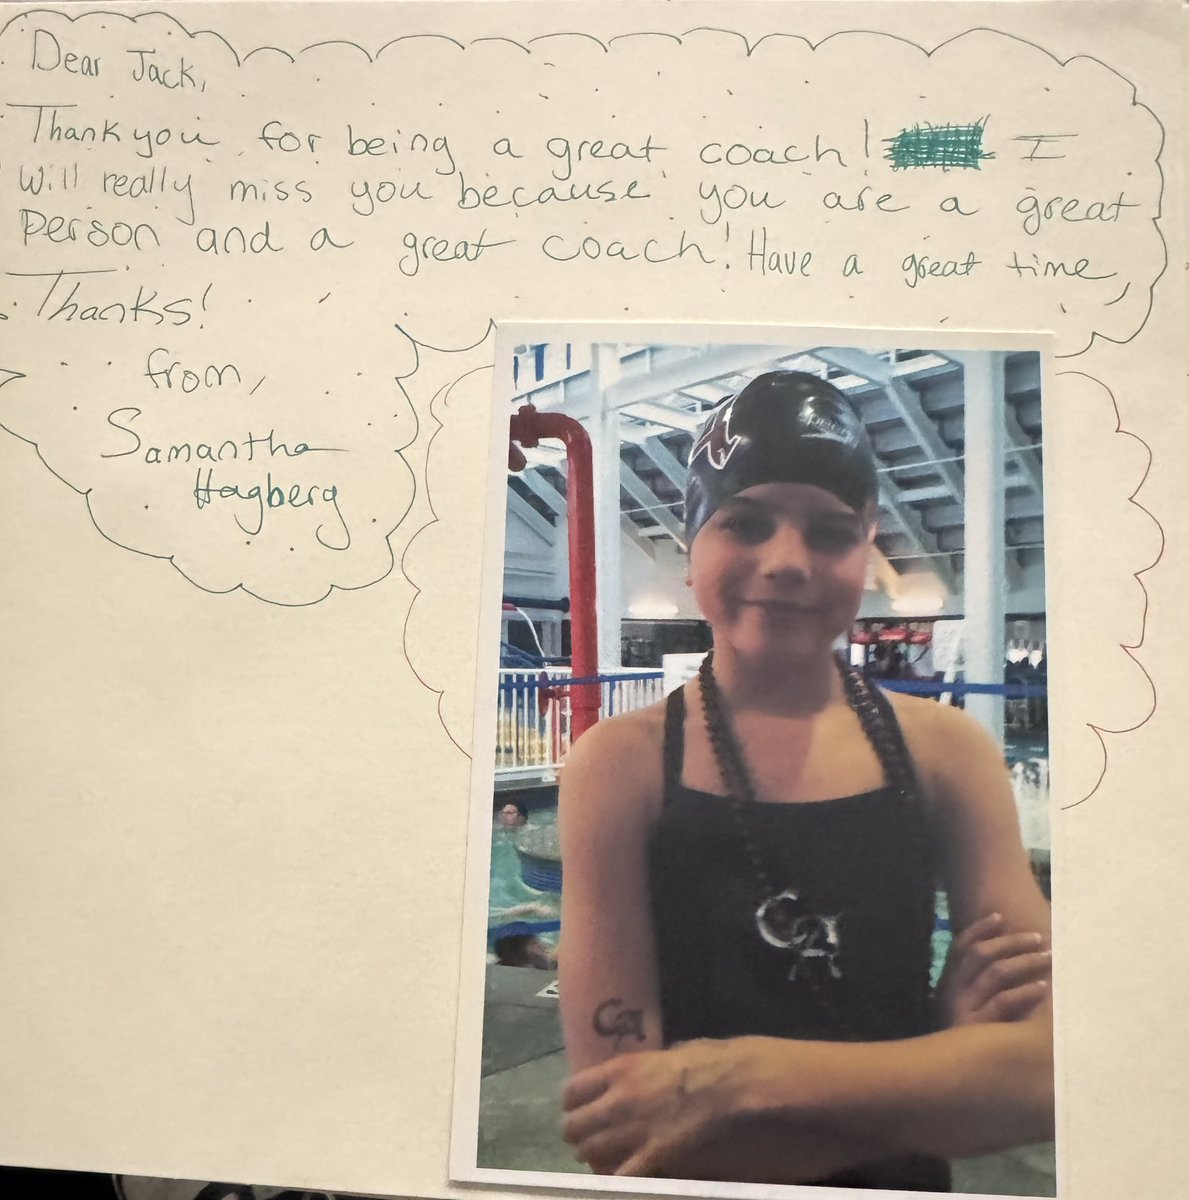 Dear Jack,
Thank you for being a great coach! I
will really miss you because you are a great
person and a great coach! Have a great time,
Thanks!
from,
Samantha
Hagberg
CA
CA